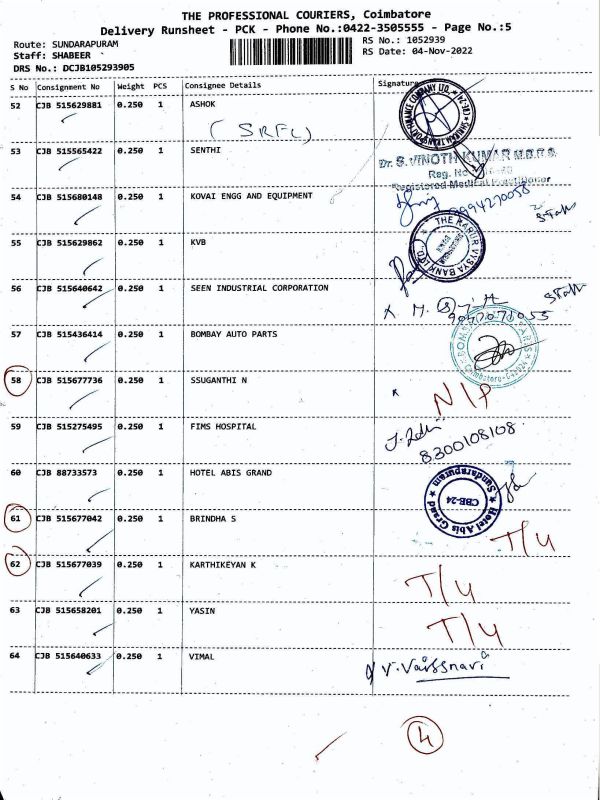 THE PROFESSIONAL COURIERS, Coimbatore
Delivery Runsheet - PCK - Phone No.:0422-3505555 - Page No.:5
Route: SUNDARAPURAM
RS No.: 1052939
Staff: SHABEER
RS Date: 04-Nov-2022
DRS No.: DCJB105293905
S No Consignment No Weight PCS Consignee Details Signature
52 CJB 515629881 0.250 1 ASHOK
(SRFL)
53 CJB 515565422 0.250 1 SENTHI
Dr. S. VINOTH KUMAR M.B.B.S.
Reg. No
Registered Medical Practitioner
54 CJB 515680148 0.250 1 KOVAI ENGG AND EQUIPMENT
9994270058
Staff
55 CJB 515629862 0.250 1 KVB
THE KARUR VYSYA BANK LTD.
56 CJB 515640642 0.250 1 SEEN INDUSTRIAL CORPORATION
Staff
57 CJB 515436414 0.250 1 BOMBAY AUTO PARTS
Coimbatore-641024
58 CJB 515677736 0.250 1 SSUGANTHI N
N/P
59 CJB 515275495 0.250 1 FIMS HOSPITAL
8300108108
60 CJB 88733573 0.250 1 HOTEL ABIS GRAND
Hotel Abis Grand
CBE-24
Sundarapuram
61 CJB 515677042 0.250 1 BRINDHA S
T/4
62 CJB 515677039 0.250 1 KARTHIKEYAN K
T/4
63 CJB 515658201 0.250 1 YASIN
T/4
64 CJB 515640633 0.250 1 VIMAL
V. Vaissnavi
4